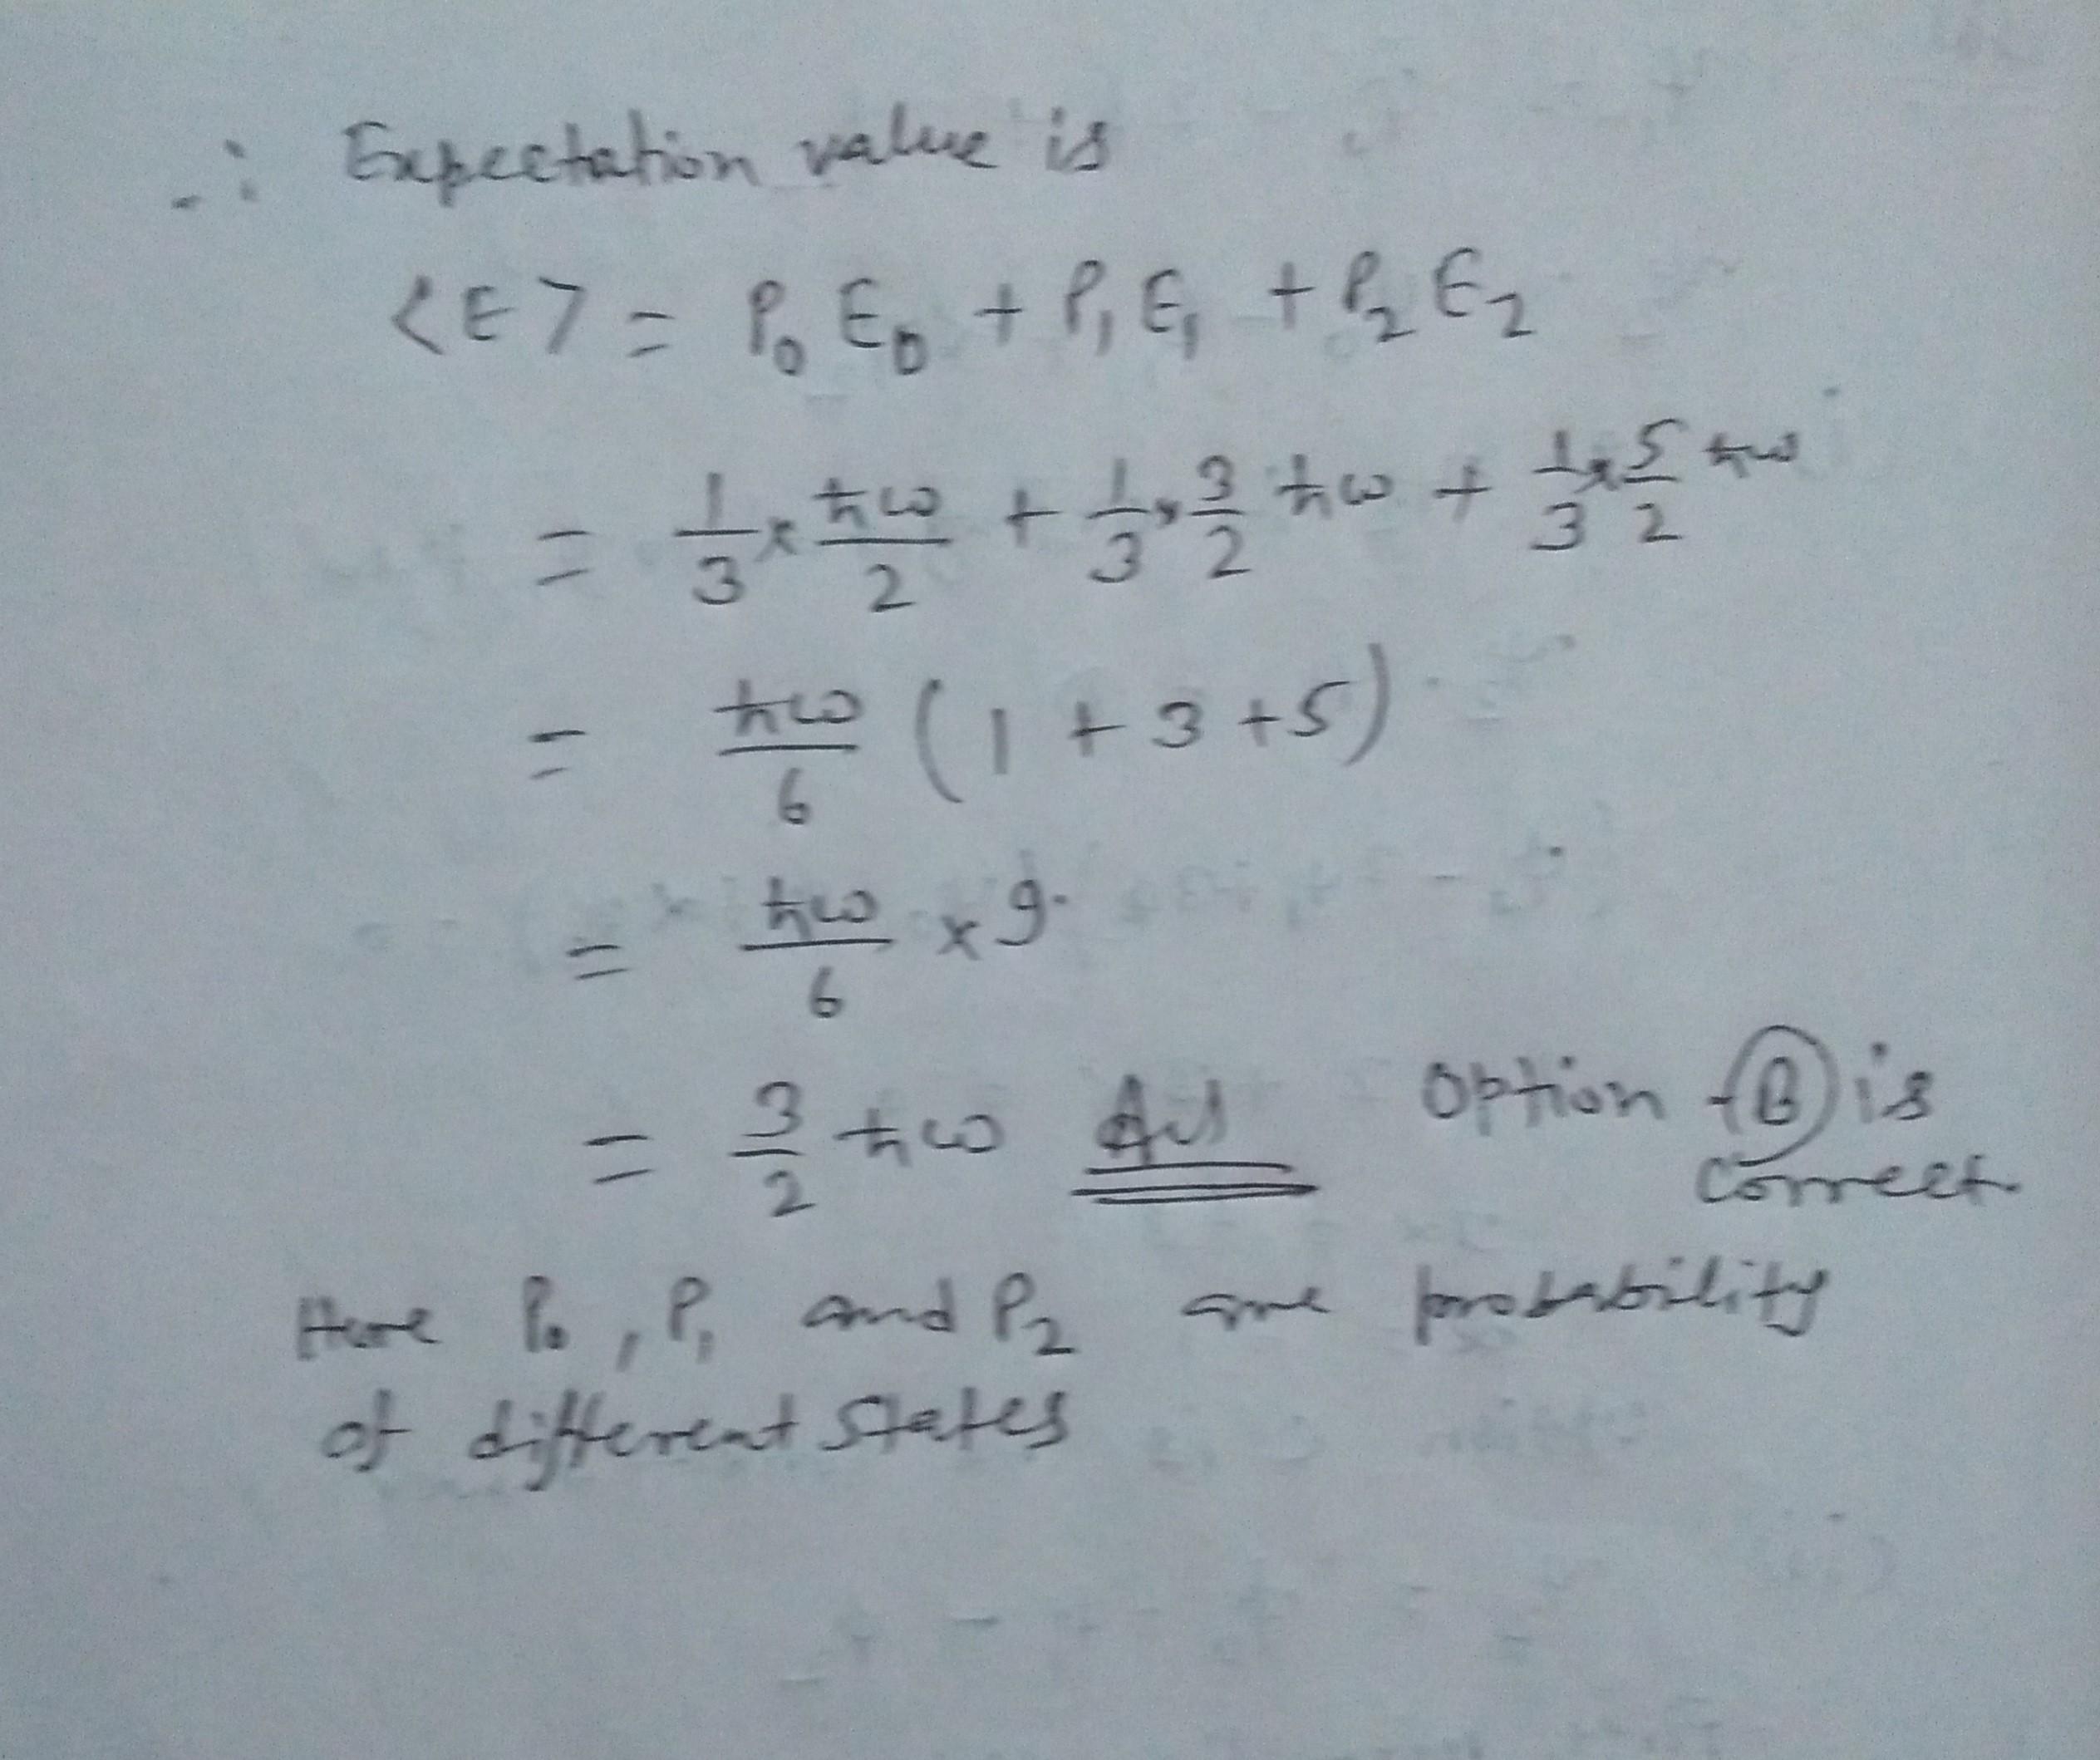 ∴ Expectation value is
<E> = P₀ E₀ + P₁ E₁ + P₂ E₂
= 1/3 × ħω/2 + 1/3 × 3/2 ħω + 1/3 × 5/2 ħω
= ħω/6 (1 + 3 + 5)
= ħω/6 × 9.
= 3/2 ħω Ans Option - B is
correct.
Here P₀, P₁ and P₂ are probability
of different states